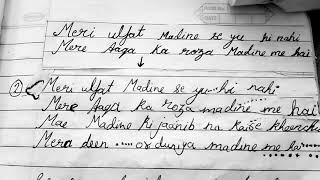 Meri ulfat Madine se yu hi nahi
Mere Aaqa ka roza Madine me hai
② Meri ulfat Madine se yu hi nahi
Mere Aaqa ka roza madine me hai
Mae Madine ki jaanib na kaise
Mera deen or duniya madine me hai